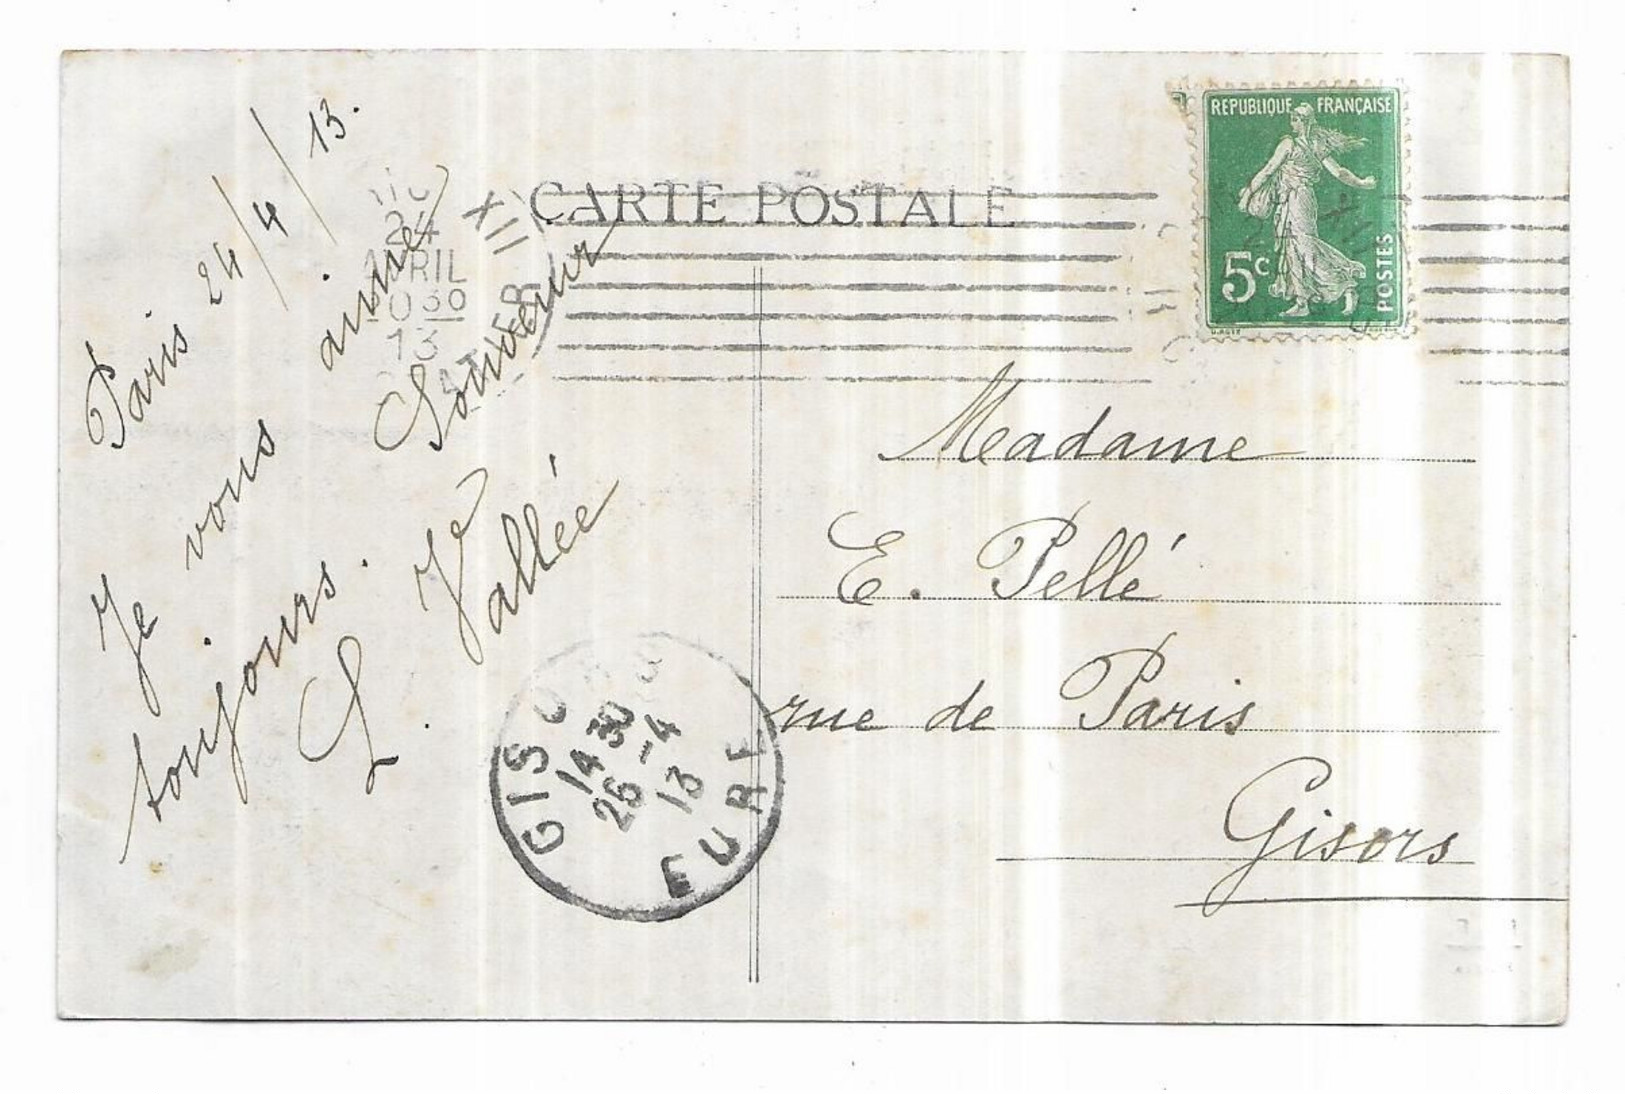 CARTE POSTALE
REPUBLIQUE FRANÇAISE
5c
POSTES
24
AVRIL
030
13
XII
Paris 24/4/13.
Je vous aime
toujours. Souvenir
L. Je
Vallée
Madame
E. Pellé
rue de Paris
Gisors
GISORS
14 30
26 -4
13
EURE